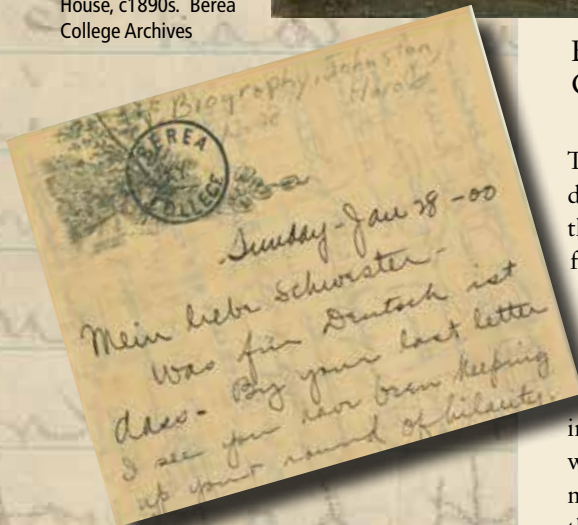 House, c1890s. Berea
College Archives
Biography, Johnston,
Harold
BEREA
KY.
COLLEGE
Sunday - Jan 28 - 00
Mein liebe Schwester -
Was für Deutsch ist
dass - By your last letter
I see you have been keeping
up your round of hilarity.